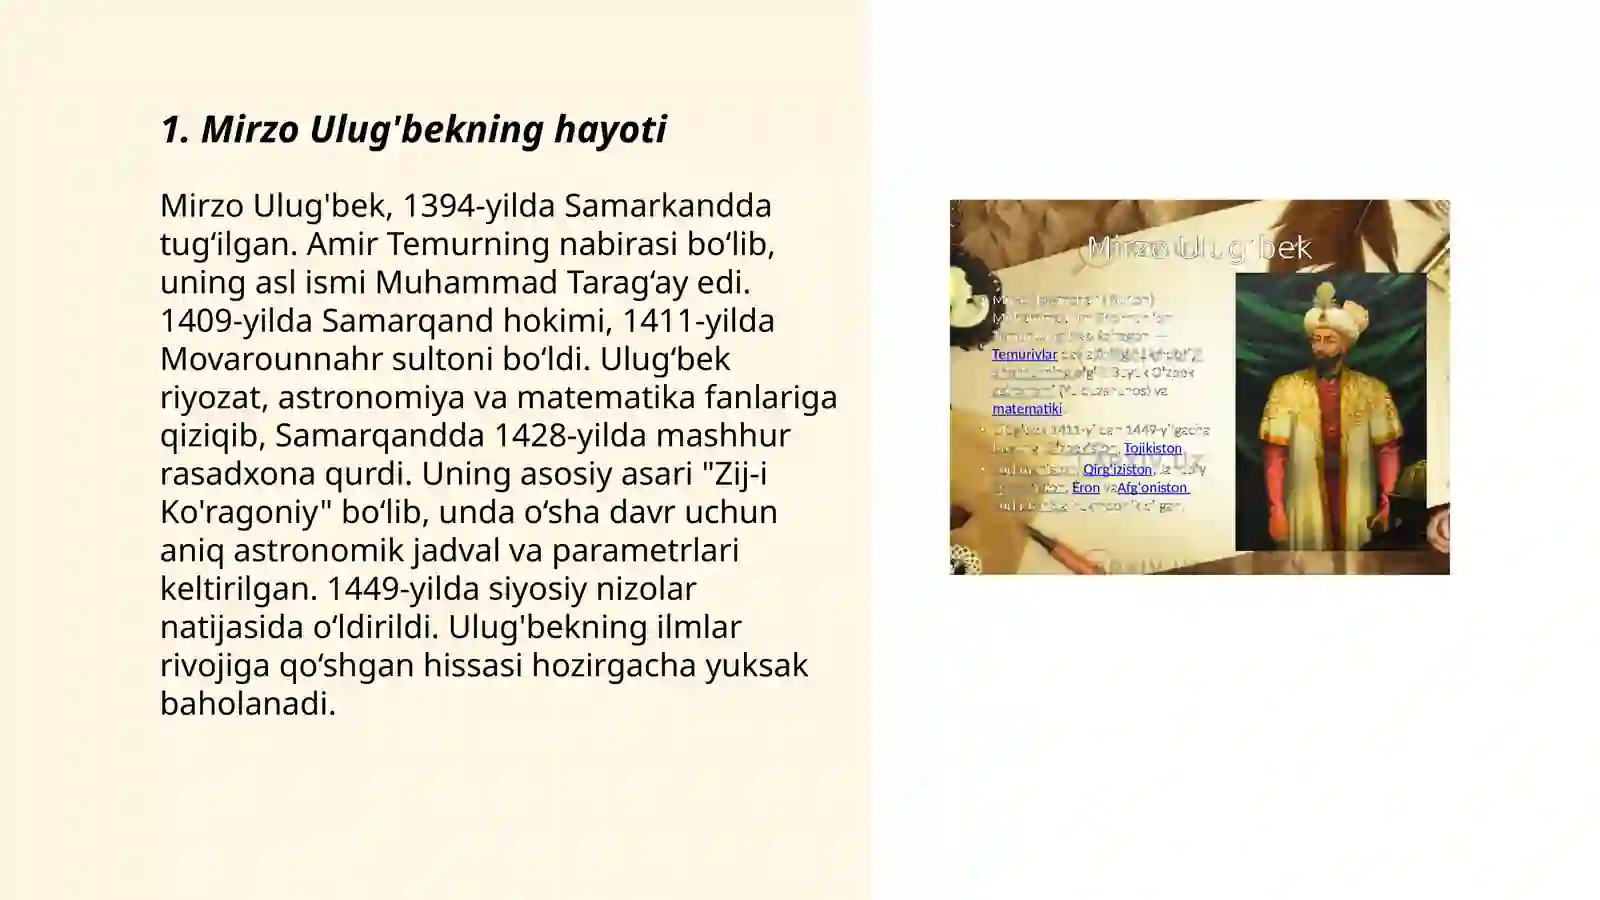 1. Mirzo Ulug'bekning hayoti
Mirzo Ulug'bek, 1394-yilda Samarkandda
tug‘ilgan. Amir Temurning nabirasi bo‘lib,
uning asl ismi Muhammad Tarag‘ay edi.
1409-yilda Samarqand hokimi, 1411-yilda
Movarounnahr sultoni bo‘ldi. Ulug‘bek
riyozat, astronomiya va matematika fanlariga
qiziqib, Samarqandda 1428-yilda mashhur
rasadxona qurdi. Uning asosiy asari "Zij-i
Ko'ragoniy" bo‘lib, unda o‘sha davr uchun
aniq astronomik jadval va parametrlari
keltirilgan. 1449-yilda siyosiy nizolar
natijasida o‘ldirildi. Ulug'bekning ilmlar
rivojiga qo‘shgan hissasi hozirgacha yuksak
baholanadi.
Mirzo Ulug‘bek
Temuriylar
matematiki
1411- 1449-
Tojikiston
Qirg‘iziston,
Eron va Afg‘oniston